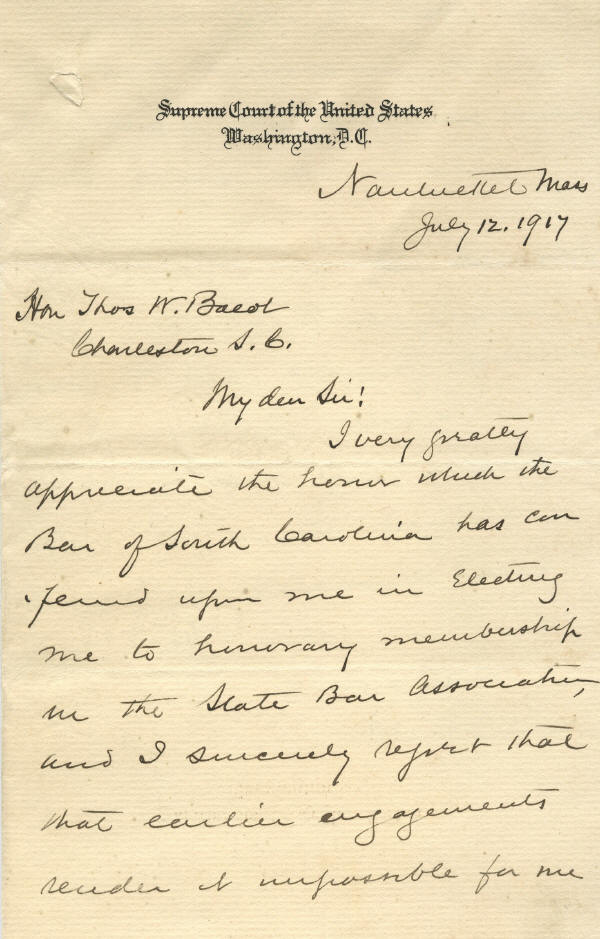 Supreme Court of the United States
Washington, D.C.
Nantucket Mass
July 12. 1917
Hon Thos W. Bacot
Charleston S. C.
My dear Sir!
I very greatly
appreciate the honor which the
Bar of South Carolina has con
ferred upon me in Electing
me to honorary membership
in the State Bar Association,
and I sincerely regret that
that earlier engagements
render it impossible for me